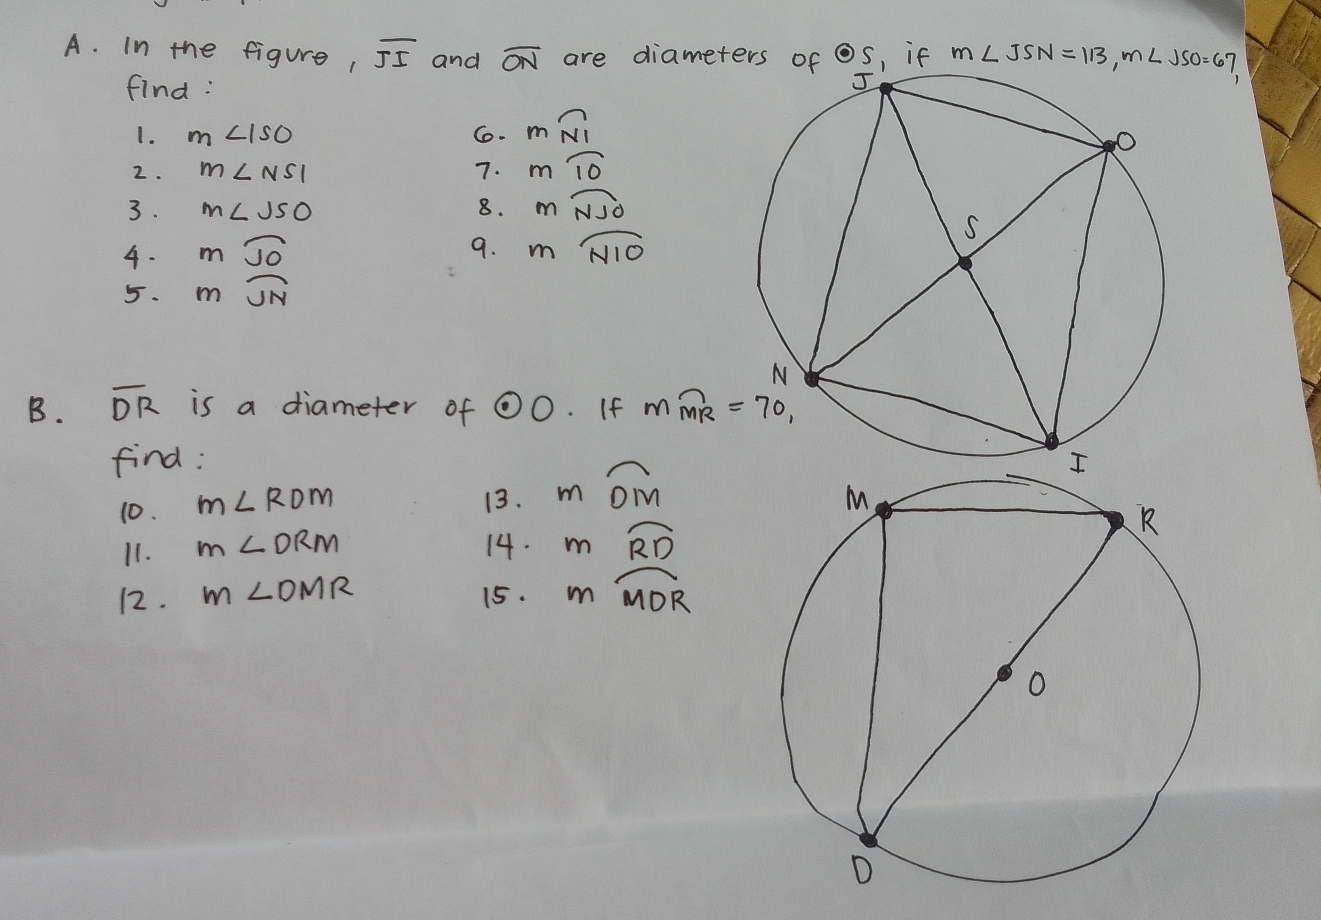 A. In the figure, JI and ON are diameters of ⊙S, if m∠JSN=113, m∠JSO=67,
find:
1. m∠ISO
2. m∠NSI
3. m∠JSO
4. m JO
5. m JN
6. m NI
7. m IO
8. m NJO
9. m NIO
J
O
S
N
I
B. DR is a diameter of ⊙O. If m MR = 70,
find:
10. m∠RDM
11. m∠DRM
12. m∠DMR
13. m DM
14. m RD
15. m MDR
M
R
O
D